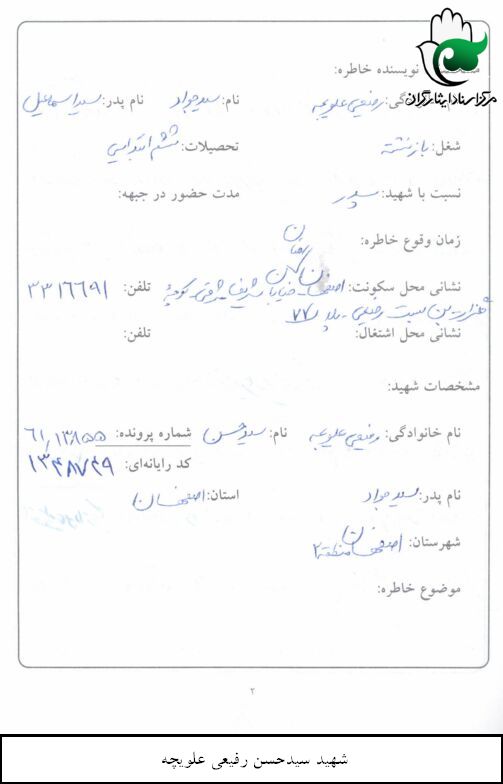 مرکز اسناد ایثارگران
نویسنده خاطره:
نام: سیدجواد نام پدر: سیداسماعیل
رفیعی علویچه
شغل: بازنشسته تحصیلات: ششم ابتدایی
نسبت با شهید: پدر مدت حضور در جبهه:
زمان وقوع خاطره:
نشانی محل سکونت: اصفهان خیابان شریف شرقی کوچه تلفن: ۳۳۱۶۶۹۱
بن بست پلاک ۷۷
نشانی محل اشتغال: تلفن:
مشخصات شهید:
نام خانوادگی: رفیعی علویچه نام: سیدحسن شماره پرونده:
کد رایانه‌ای: ۱۳۴۸۷۴۹
نام پدر: سیدجواد استان: اصفهان
شهرستان: اصفهان منطقه ۲
موضوع خاطره:
۲
شهید سیدحسن رفیعی علویچه